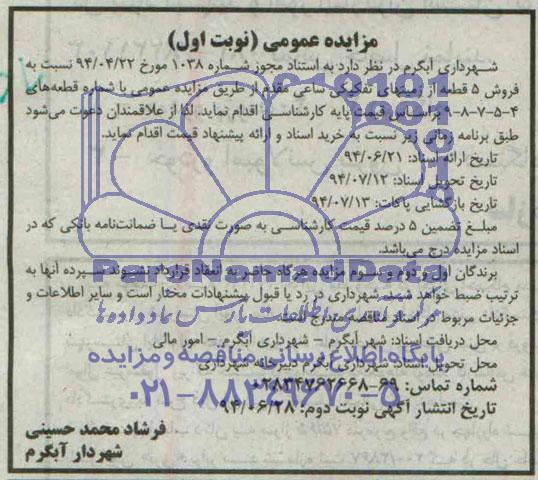 مزایده عمومی (نوبت اول)
شهرداری آبگرم در نظر دارد به استناد مجوز شماره ۱۰۳۸ مورخ ۹۴/۰۴/۲۲ نسبت به
فروش ۵ قطعه از زمینهای تفکیکی ساعی مقدم از طریق مزایده عمومی با شماره قطعه‌های
۴-۵-۷-۸-۹ براساس قیمت پایه کارشناسی اقدام نماید. لذا از علاقمندان دعوت می‌شود
طبق برنامه زمانی زیر نسبت به خرید اسناد و ارائه پیشنهاد قیمت اقدام نماید.
تاریخ ارائه اسناد: ۹۴/۰۶/۲۱
تاریخ تحویل اسناد: ۹۴/۰۷/۱۲
تاریخ بازگشایی پاکات: ۹۴/۰۷/۱۳
مبلغ تضمین ۵ درصد قیمت کارشناسی به صورت نقدی یا ضمانت‌نامه بانکی که در
اسناد مزایده درج می‌باشد.
برندگان اول و دوم و سوم مزایده هرگاه حاضر به انعقاد قرارداد نشوند سپرده آنها به
ترتیب ضبط خواهد شد. شهرداری در رد یا قبول پیشنهادات مختار است و سایر اطلاعات و
جزئیات مربوط در اسناد مناقصه مندرج است.
محل دریافت اسناد: شهر آبگرم - شهرداری آبگرم - امور مالی
محل تحویل اسناد: شهرداری آبگرم دبیرخانه شهرداری
شماره تماس: ۶۹-۰۲۸۳۴۷۶۲۶۶۸
تاریخ انتشار آگهی نوبت دوم: ۹۴/۰۶/۲۸
فرشاد محمد حسینی
شهردار آبگرم
ParsNamadData
پایگاه اطلاع رسانی مناقصه و مزایده
۰۲۱-۸۸۳۴۹۶۷۰-۵